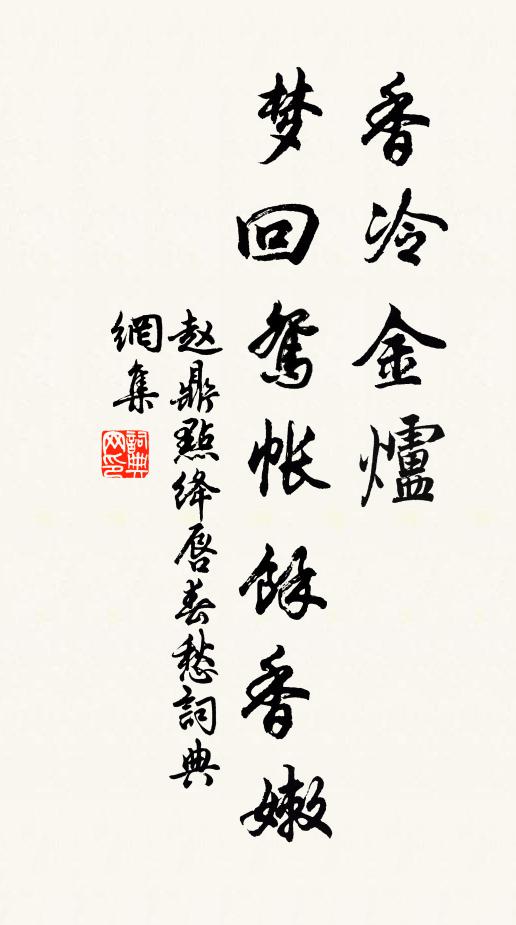 香冷金爐
梦回鴛帳餘香嫩
赵鼎點绛唇春愁詞典
網集
詞典
网印